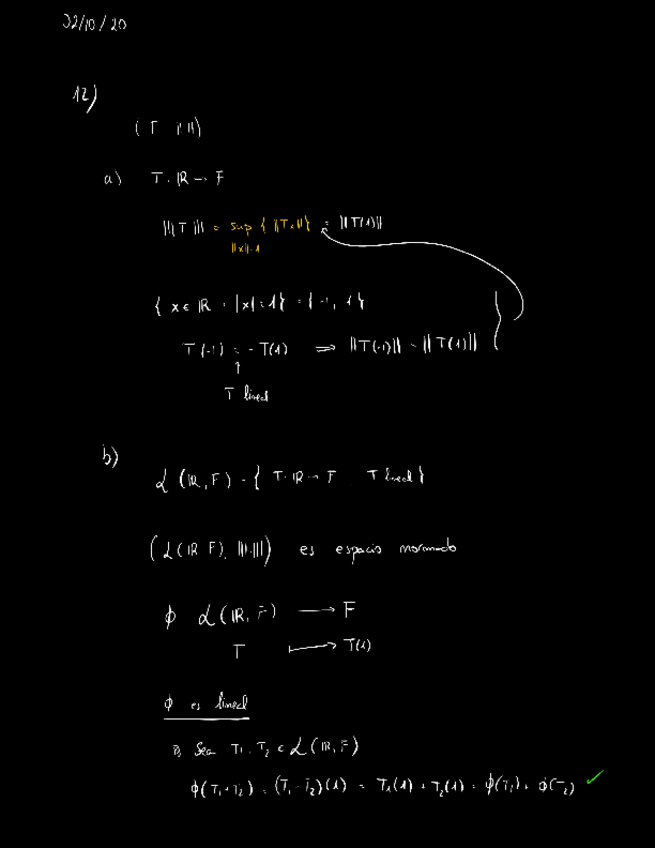 02/10/20
12)
(F, ‖·‖)
a) T: ℝ → F
|||T||| = sup { ‖Tx‖ } = ‖T(1)‖
‖x‖=1
{ x ∈ ℝ : |x| = 1 } = { -1, 1 }
T(-1) = - T(1) ⇒ ‖T(-1)‖ = ‖T(1)‖
↑
T lineal
b)
ℒ(ℝ, F) = { T: ℝ → F : T lineal }
(ℒ(ℝ, F), |||·|||) es espacio normado
ϕ: ℒ(ℝ, F) ⟶ F
T ⟼ T(1)
ϕ es lineal
Sea T₁, T₂ ∈ ℒ(ℝ, F)
ϕ(T₁+T₂) = (T₁+T₂)(1) = T₁(1) + T₂(1) = ϕ(T₁) + ϕ(T₂) ✓